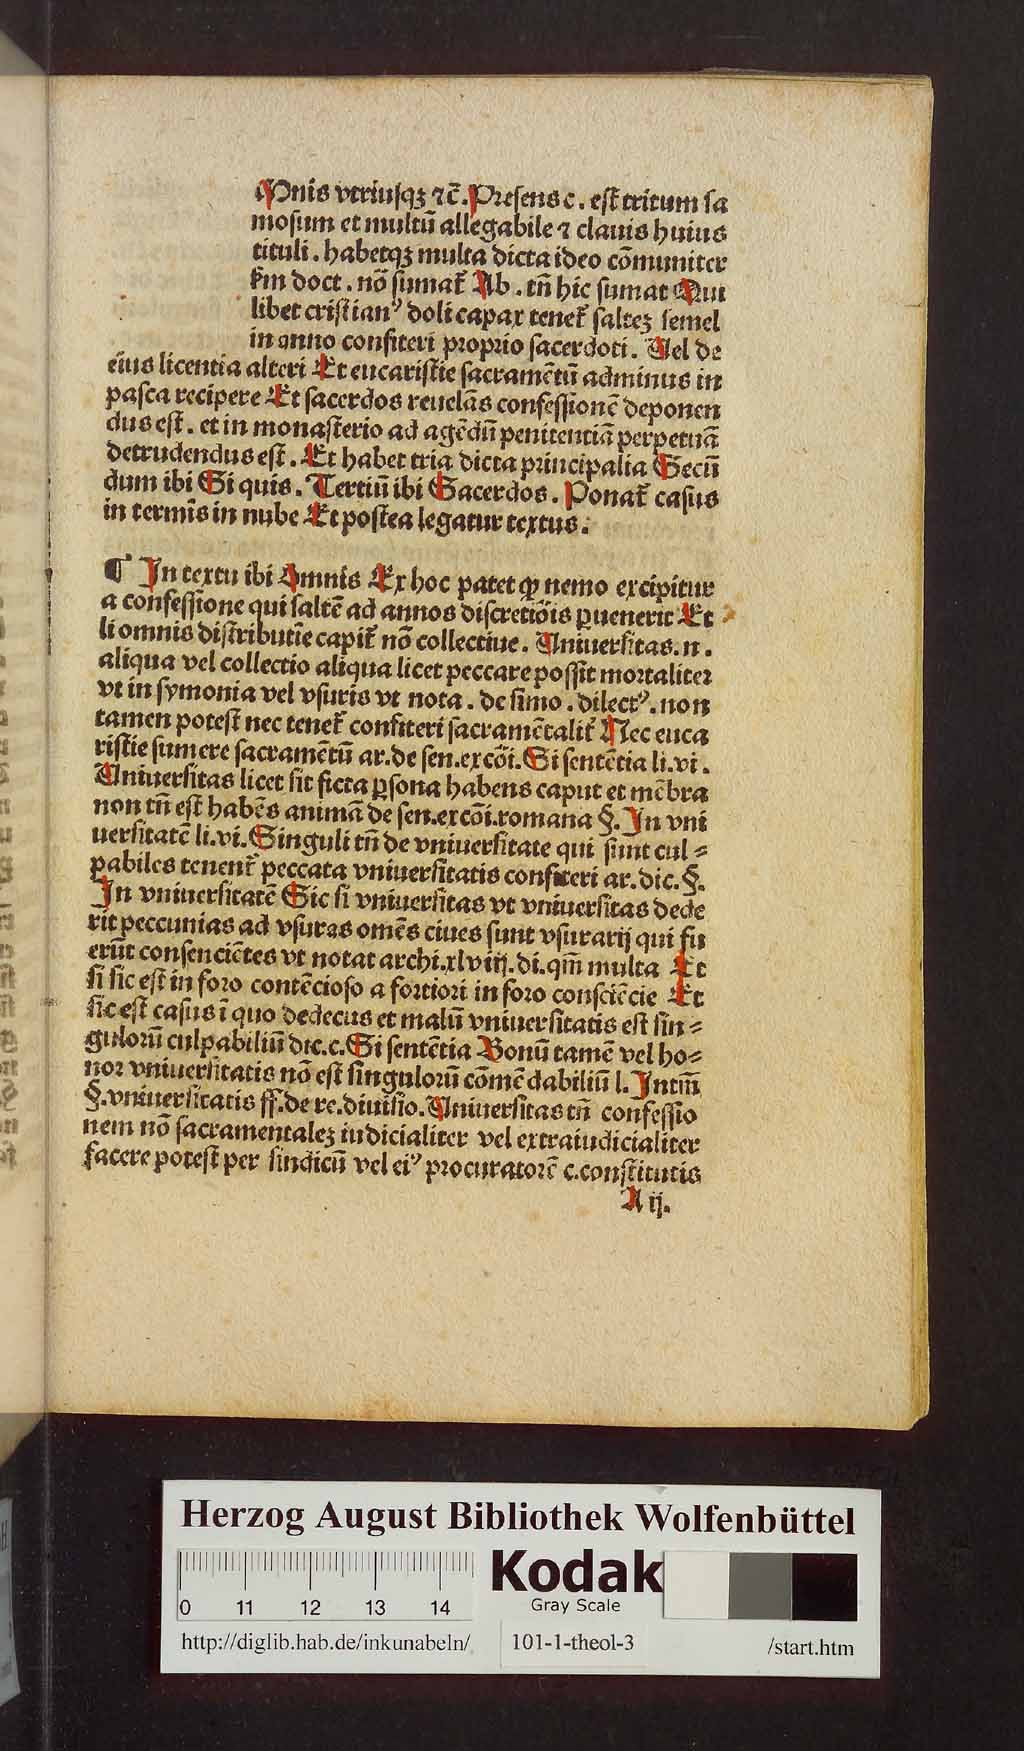 Omnis vtriusqꝫ ⁊c̄. Presens c. est tritum fa
mosum et multū allegabile ⁊ clauis huius
tituli. habetqꝫ multa dicta ideo cōmuniter
s̄m doct. nō sumat᷑ Ab. tn̄ hic sumat Qui
libet cristianꝰ doli capax tenet᷑ saltēꝫ semel
in anno confiteri proprio sacerdoti. Vel de
eius licentia alteri Et eucaristie sacramētū adminus in
pasca recipere Et sacerdos reuelās confessionē deponen
dus est. et in monasterio ad agēdū penitentiā perpetuā
detrudendus est. Et habet tria dicta principalia Secū
dum ibi Si quis. Tertiū ibi Sacerdos. Ponat᷑ casus
in termīs in nube Et postea legatur textus.
¶ In textu ibi Omnis Ex hoc patet ꝙ nemo excipitur
a confessione qui saltē ad annos discretiōis ꝑuenerit Et
li omnis distributīe capit᷑ nō collectiue. Uniuersitas.n.
aliqua vel collectio aliqua licet peccare possit mortaliter
vt in symonia vel vsuris vt nota. de simo. dilectꝰ. non
tamen potest nec tenet᷑ confiteri sacramētalit᷑ Nec euca
ristie sumere sacramētū ar.de sen.excōi. Si sentētia li.vi.
Uniuersitas licet sit ficta ꝑsona habens caput et mēbra
non tn̄ est habēs animā de sen.excōi.romana §. In vni
uersitatē li.vi. Singuli tn̄ de vniuersitate qui sunt cul⸗
pabiles tenent᷑ peccata vniuersitatis confiteri ar.dic.§.
In vniuersitatē Sic si vniuersitas vt vniuersitas dede
rit peccunias ad vsuras omēs ciues sunt vsurarij qui fu
erūt consenciētes vt notat archi.xlviij.di.qm̄ multa Et
si sic est in foro contēcioso a fortiori in foro consciēcie Et
sic est casus ī quo dedecus et malū vniuersitatis est sin⸗
gulorū culpabiliū dic.c. Si sentētia Bonū tamē vel ho⸗
nor vniuersitatis nō est singulorū cōmēdabiliū l. Intm̄
§.vniuersitatis ff.de re.diuisio. Uniuersitas tn̄ confessio
nem nō sacramentaleꝫ iudicialiter vel extraiudicialiter
facere potest per sindicū vel eiꝰ procuratorē c.constitutis
A ij.
Herzog August Bibliothek Wolfenbüttel
0 11 12 13 14
Kodak
Gray Scale
http://diglib.hab.de/inkunabeln/ 101-1-theol-3 /start.htm